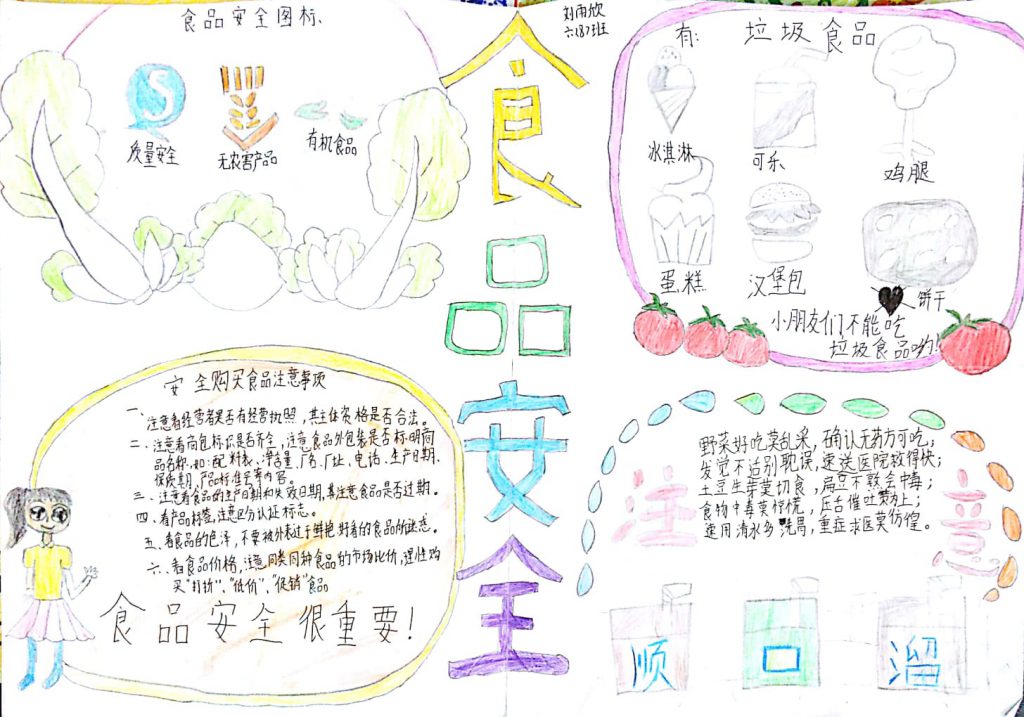 食品安全图标
质量安全
无农害产品
有机食品
食品安全
刘雨欣
六(8)班
有: 垃圾食品
冰淇淋
可乐
鸡腿
蛋糕
汉堡包
饼干
小朋友们不能吃
垃圾食品哟!
安全购买食品注意事项
一、注意看经营者是否有经营执照,其主体资格是否合法。
二、注意看商包标识是否齐全,注意食品外包装是否标明商
品名称,如:配料表、净含量、厂名、厂址、电话、生产日期、
保质期、产品标准号等内容。
三、注意看食品的生产日期和失效日期,其注意食品是否过期。
四、看产品标签,注意区分认证标志。
五、看食品的色泽,不要被外表过于鲜艳好看的食品所迷惑。
六、看食品价格,注意同类同种食品的市场比价,理性购
买"打折"、"低价"、"促销"食品
食品安全很重要!
注意
野菜好吃莫乱采,确认无药方可吃;
发觉不适别耽误,速送医院救得快;
土豆生芽莫切食,扁豆不熟会中毒;
食物中毒莫惊慌,压舌催吐赞为上;
速用清水多洗胃,重症求医莫仿偟。
顺口溜